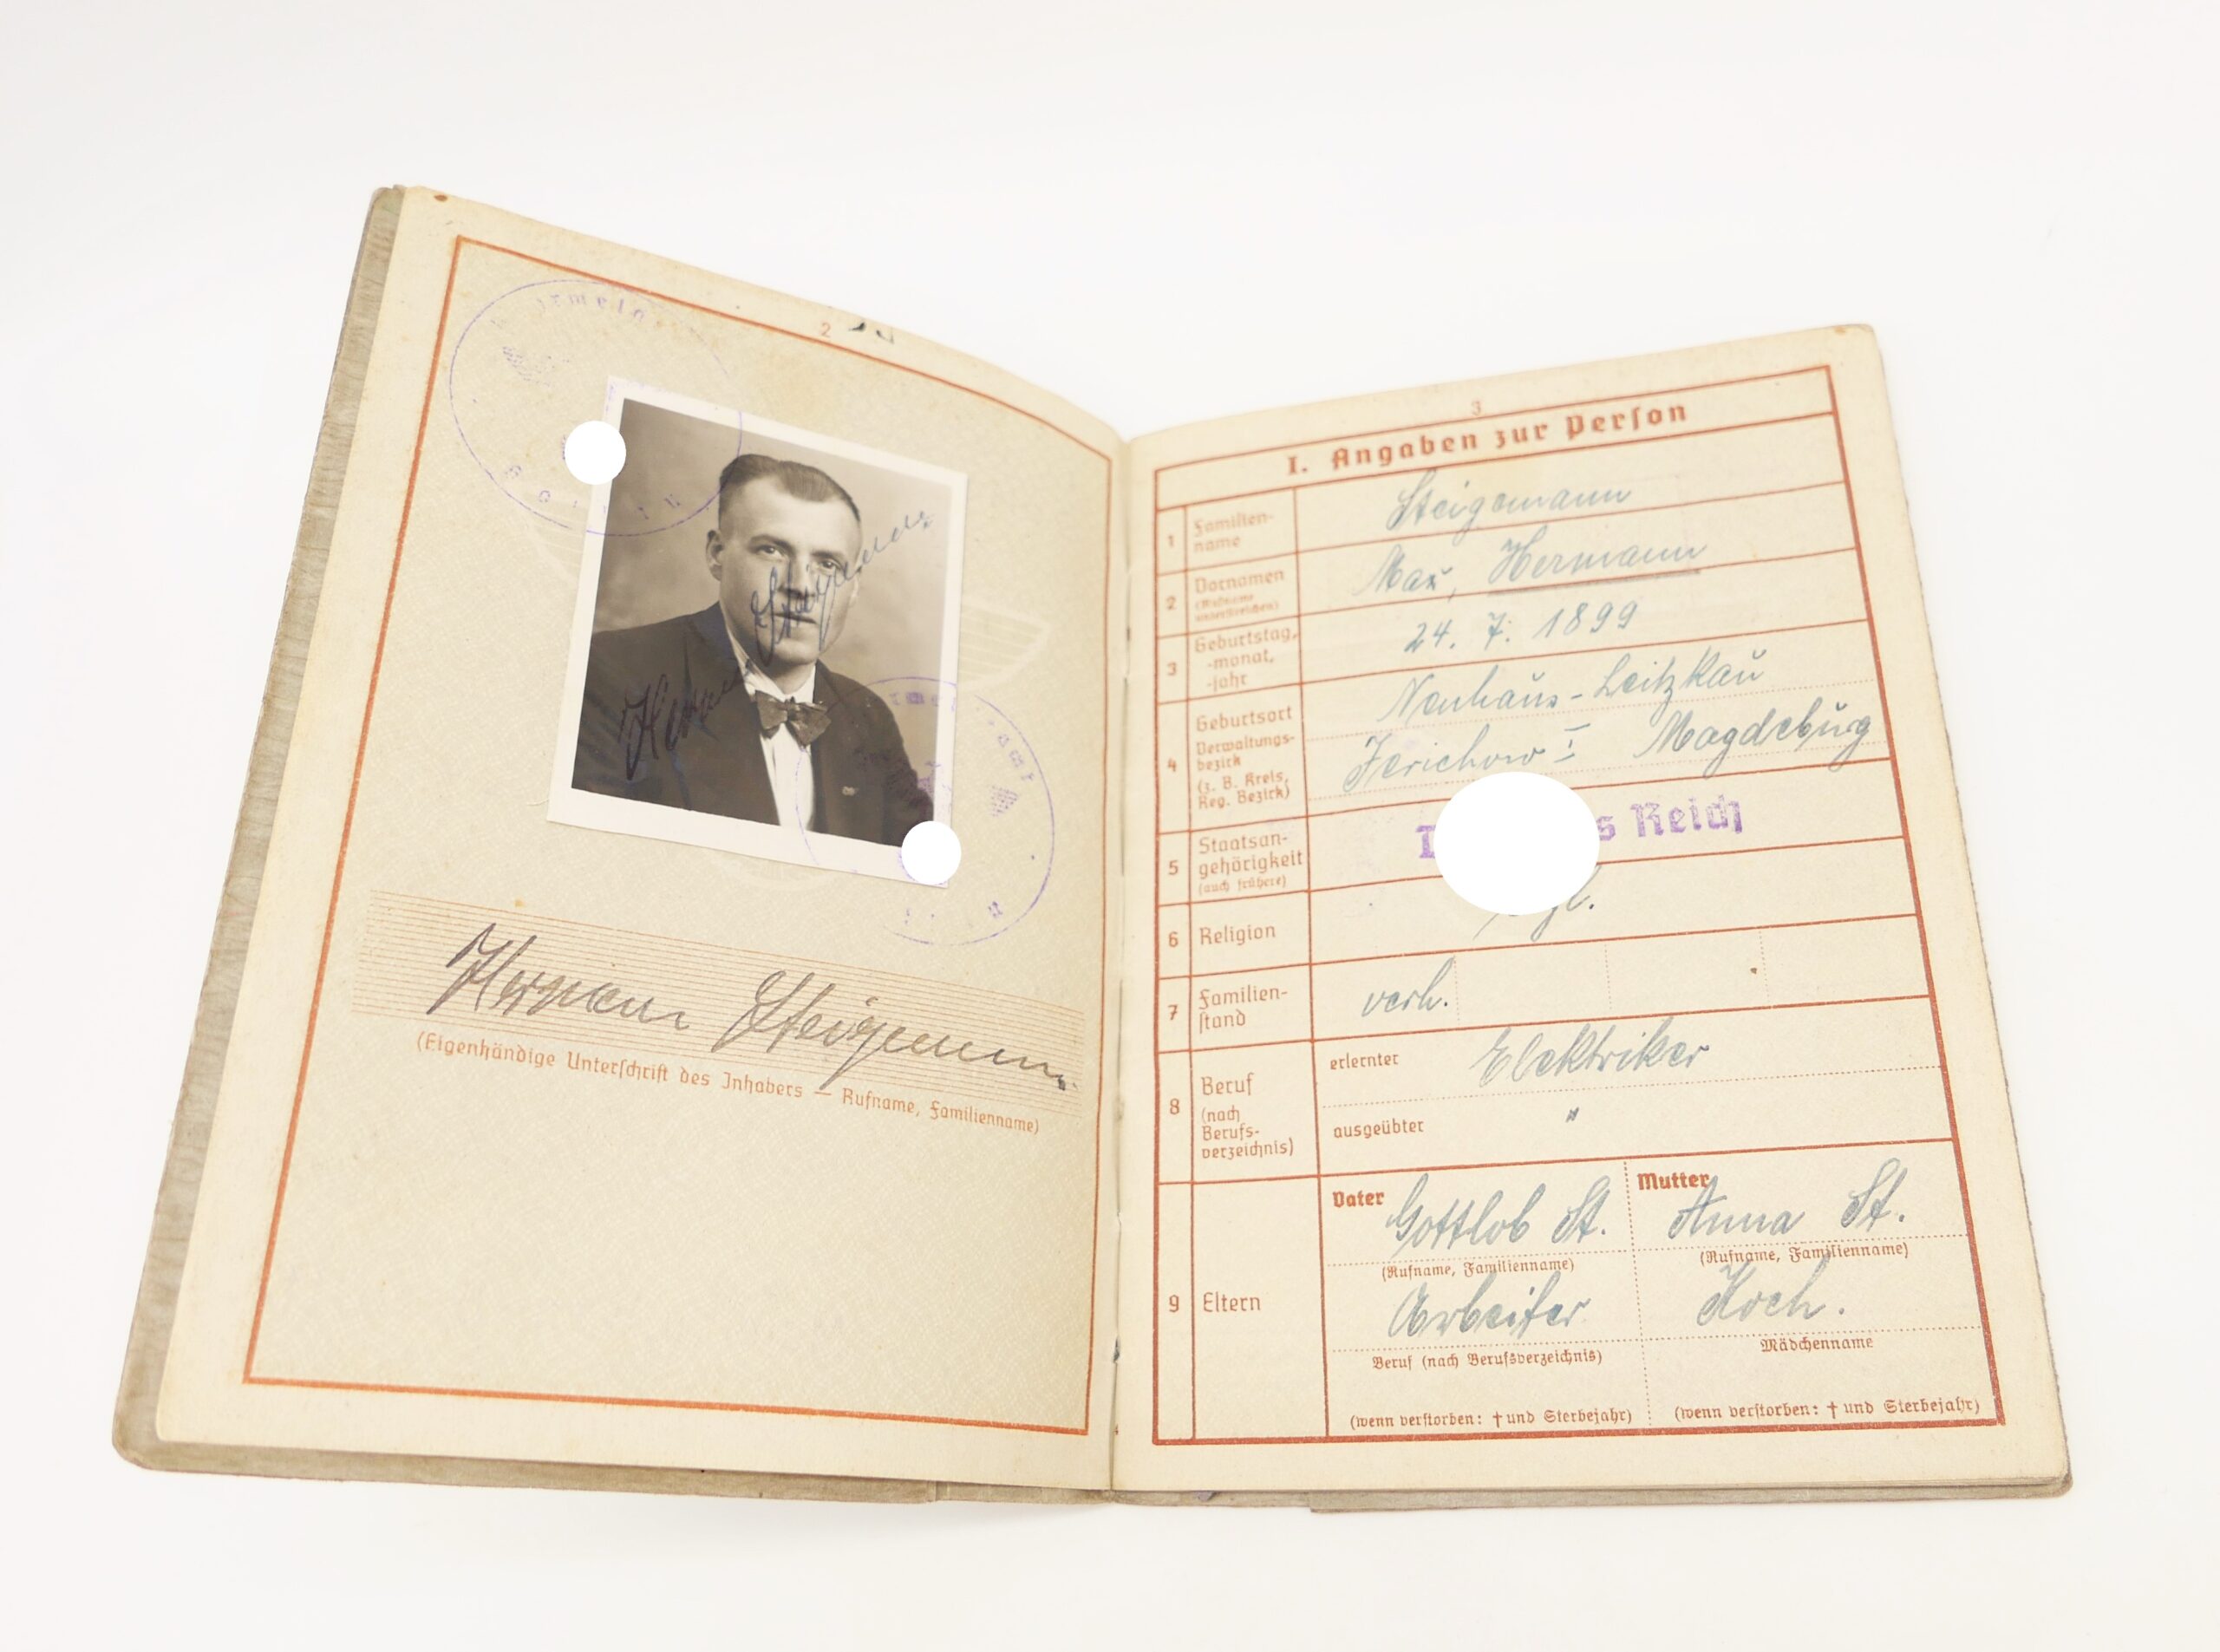 2
Hermann Steigemann
Hermann Steigemann
(Eigenhändige Unterschrift des Inhabers — Rufname, Familienname)
3
I. Angaben zur Person
1 Familien-
name
Steigemann
2 Vornamen
(Rufname
unterstreichen)
Max, Hermann
3 Geburtstag,
-monat,
-jahr
24. 7. 1899
4 Geburtsort
Verwaltungs-
bezirk
(z. B. Kreis,
Reg. Bezirk)
Neuhaus-Leitzkau
Jerichow I Magdeburg
5 Staatsan-
gehörigkeit
(auch frühere)
s Reich
6 Religion
7 Familien-
stand
verh.
8 Beruf
(nach
Berufs-
verzeichnis)
erlernter Elektriker
ausgeübter "
9 Eltern
Vater Gottlob St.
(Rufname, Familienname)
Arbeiter
Beruf (nach Berufsverzeichnis)
(wenn verstorben: † und Sterbejahr)
Mutter Anna St.
(Rufname, Familienname)
Koch.
Mädchenname
(wenn verstorben: † und Sterbejahr)